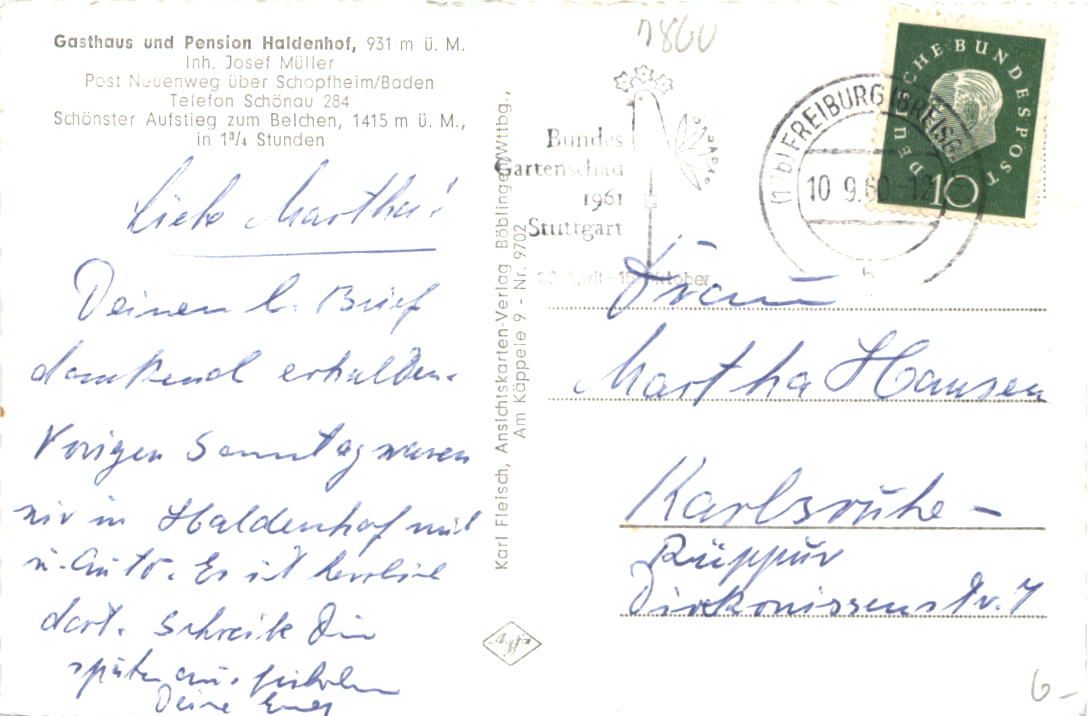 Gasthaus und Pension Haldenhof, 931 m ü. M.
Inh. Josef Müller
Post Neuenweg über Schopfheim/Baden
Telefon Schönau 284
Schönster Aufstieg zum Belchen, 1415 m ü. M.,
in 1¾ Stunden
Liebe Martha!
Deinen l. Brief
dankend erhalten.
Vorigen Sonntag waren
wir in Haldenhof mit
u. Auto. Es ist herrlich
dort. Schreibe Dir
später ausführlicher
Deine
Karl Fleisch, Ansichtskarten-Verlag Böblingen/Wttbg.,
Am Käppele 9 - Nr. 9702
Agfa
1800
Bundes
Gartenschau
1961
Stuttgart
April - Oktober
(17b) FREIBURG (BREISG
10 9.60-12
h
DEUTSCHE BUNDESPOST
10
Frau
Martha Hansen
Karlsruhe -
Rüppur
Diakonissenstr. 7
6-